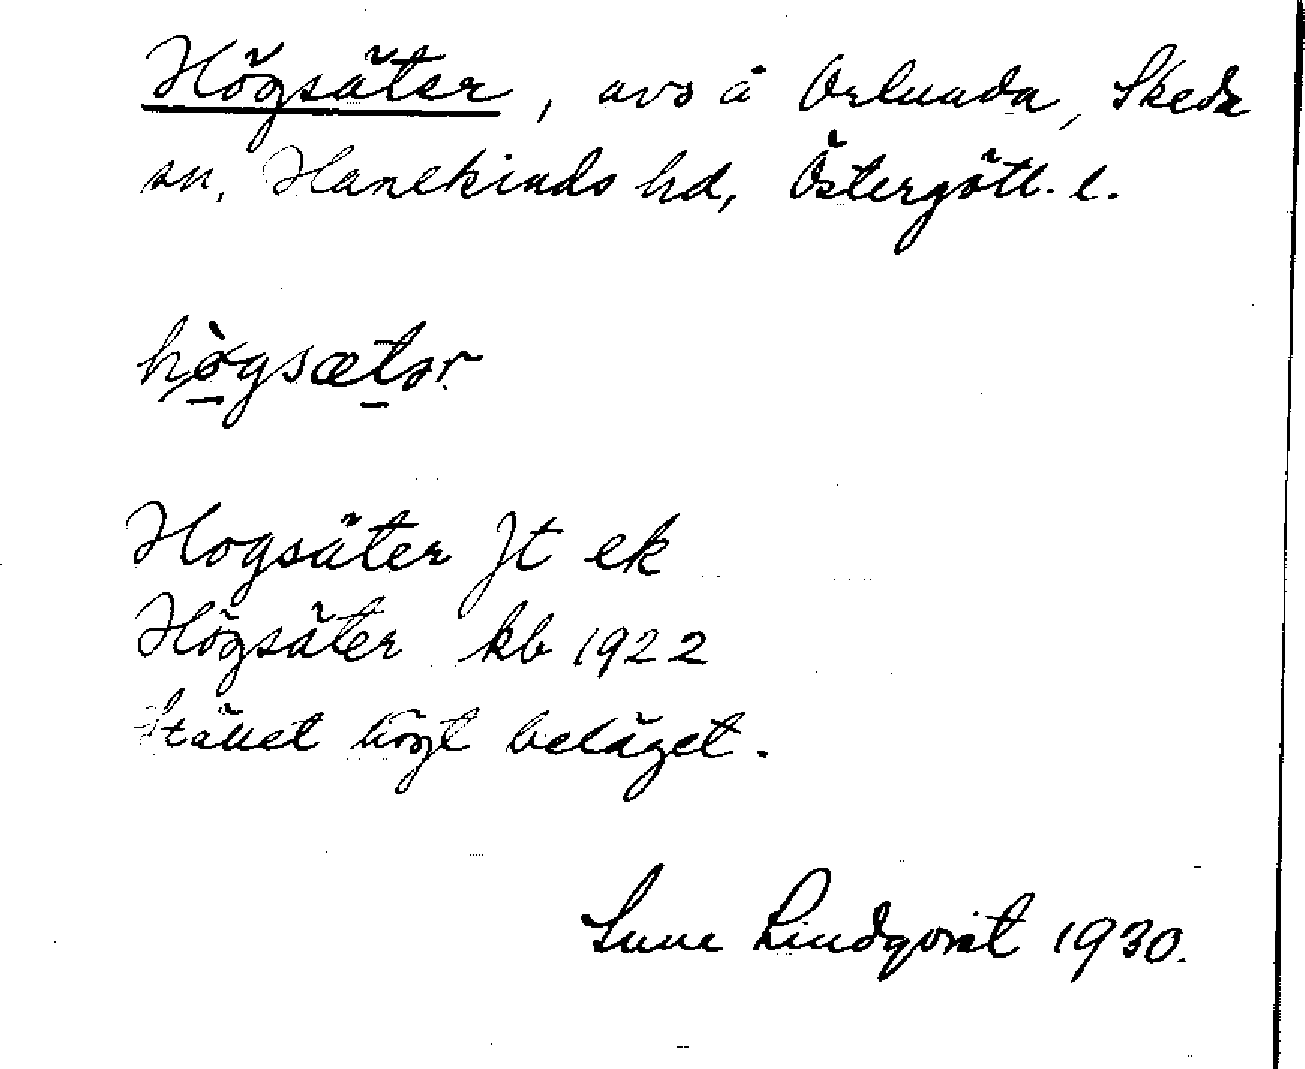 Högsäter, avs å Orlunda, Skeda
sn, Hanekinds hd, Östergötl. l.
hø̀gsætər
Hogsäter Jt ek
Högsäter kb 1922
Stället högt beläget.
Sune Lindqvist 1930.